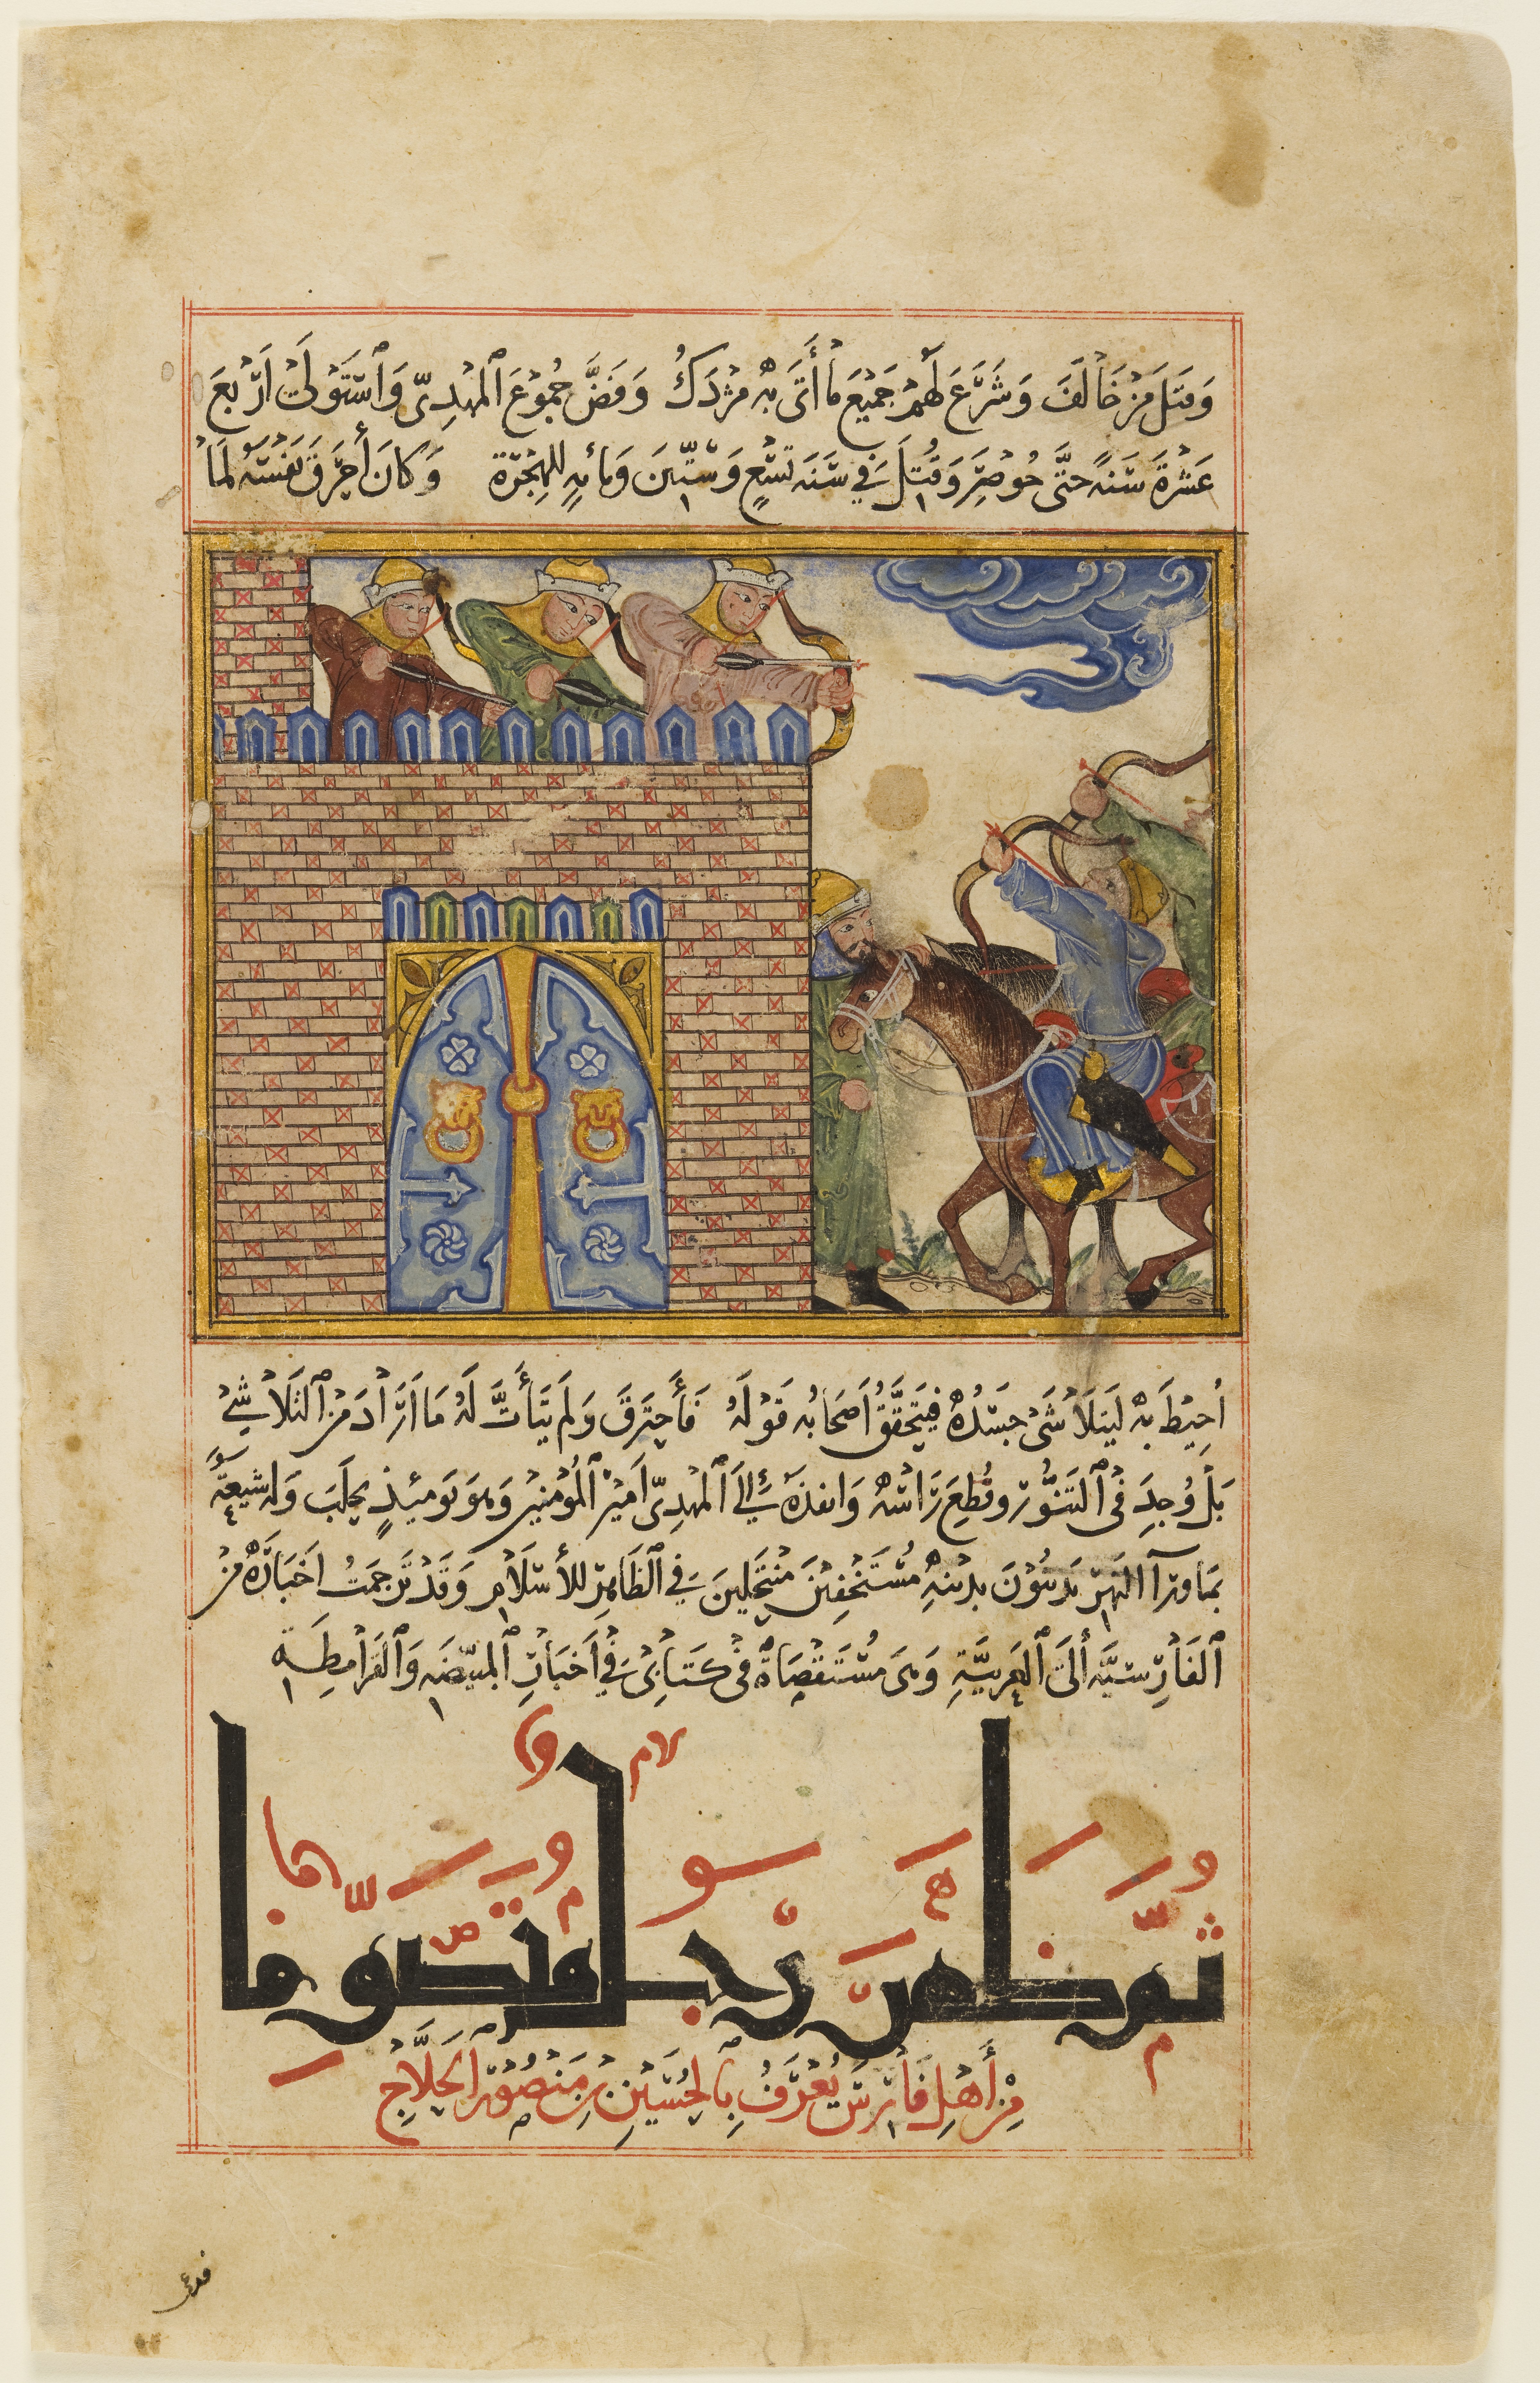 وَقَتَلَ مَنْ خَالَفَ وَشَرَّعَ لَهُمْ جَمِيْعَ مَا أَتَى بِهِ مَزْدَكُ وَفَضَّ جُمُوْعَ ٱلْمَهْدِيّ وَٱسْتَوْلَى اَرْبَعَ
عَشْرَةَ سَنَةً حَتَّى حُوْصِرَ وَقُتِلَ فِي سَنَه تِسْعٍ وَسِتِّيْنَ وَمِائهٍ لِلهِجْرَة وَكَانَ أَحْرَقَ نَفْسَهُ لَمَا
اُحِيْطَ بِهِ لَيَتَلاَشَى جَسَدُهُ فَيَتَحَقَّقَ أَصْحَابُه قَوْلَهُ فَأَحْتَرَقَ وَلَمْ يَتَأَتَّ لَهُ مَا اَرَادَ مِنَ ٱلتَلَاشِي
بَلْ وُجِدَ فِى ٱلتَنُّوْر وقُطِعَ رَاسُهُ وَانفذَ إِلَى ٱلْمَهْدِيّ اَمِيْرِ ٱلْمُؤْمِنِيْنَ وَهوَ يَومَئِذٍ بحَلَبَ وَلهُ شِيعَةٌ
بمَا ورَآ النَهرِ يَدِينُوْنَ بِدِيْنِهِ مُسْتَخْفِيْنَ مُنْتَحِلِينَ فِي ٱلظَاهِرِ للأسْلَامِ وَقَدْ تَرجَمتُ اَخْبَارَهُ مِنْ
ٱلفَارِسيَّه ألَى ٱلعَرَبيَّةِ وَهىَ مُسْتَقْصَاةٌ فى كتَابِىْ فِي اَخْبَارِ ٱلمبيّضَه وَٱلقَرَامطِة
ثُمَّ ظَهَرَ رَجُلٌ مُتَصَوِّفٌ
مِنْ أَهْلِ فَارِسَ يُعْرَفُ بِٱلحُسَيْنِ بْنِ مَنْصُوْر ٱلحَلَّاج